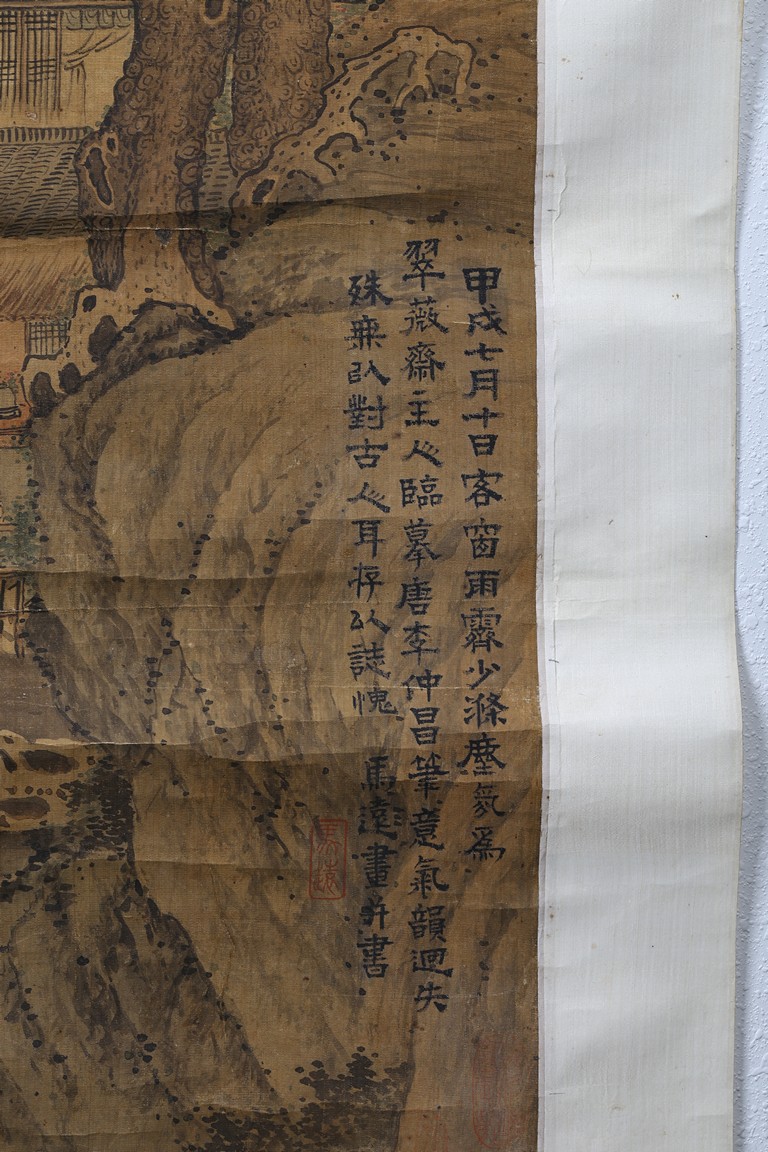 甲戌七月十日客窗雨霽少滌塵氛為
翠薇齋主人臨摹唐李仲昌筆意氣韻迥失
殊無以對古人耳存以誌愧
馬遠畫并書
馬遠